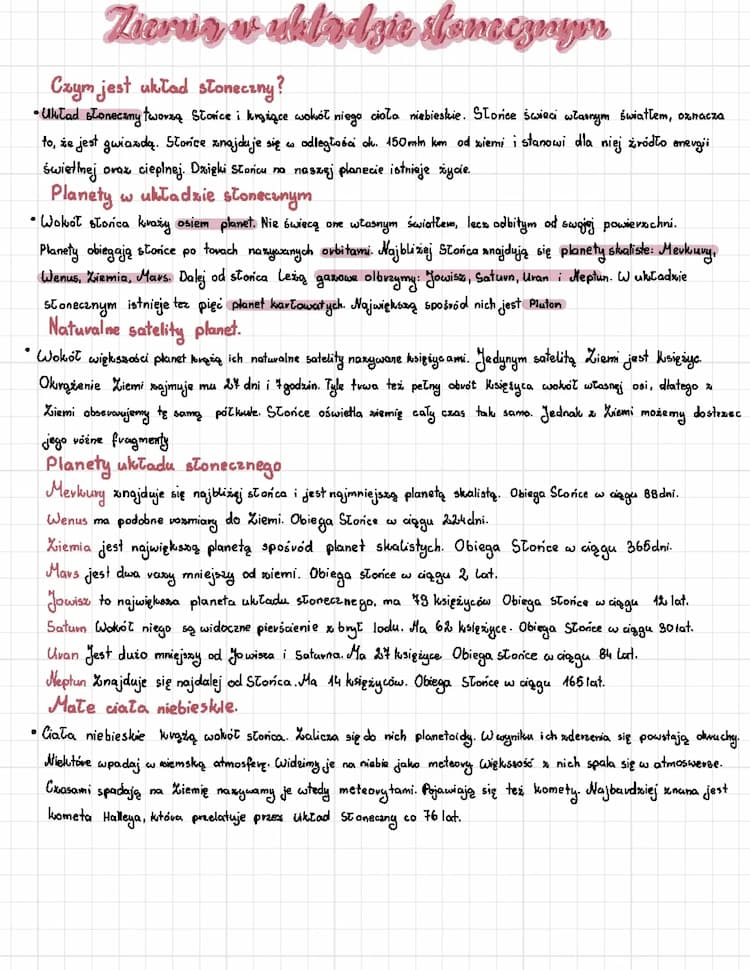 Ziemia w układzie słonecznym
Czym jest układ słoneczny?
• Układ słoneczny tworzą Słońce i krążące wokół niego ciała niebieskie. Słońce świeci własnym światłem, oznacza
to, że jest gwiazdą. Słońce znajduje się w odległości ok. 150mln km od ziemi i stanowi dla niej źródło energii
świetlnej oraz cieplnej. Dzięki Słońcu na naszej planecie istnieje życie.
Planety w układzie słonecznym
• Wokół słońca krąży osiem planet. Nie świecą one własnym światłem, lecz odbitym od swojej powierzchni.
Planety obiegają słońce po torach nazywanych orbitami. Najbliżej Słońca znajdują się planety skaliste: Merkury,
Wenus, Ziemia, Mars. Dalej od słońca leżą gazowe olbrzymy: Jowisz, Saturn, Uran i Neptun. W układzie
słonecznym istnieje też pięć planet karłowatych. Największą spośród nich jest Pluton
Naturalne satelity planet.
• Wokół większości planet krążą ich naturalne satelity nazywane księżycami. Jedynym satelitą Ziemi jest Księżyc.
Okrążenie Ziemi zajmuje mu 27 dni i 7 godzin. Tyle trwa też pełny obrót Księżyca wokół własnej osi, dlatego z
Ziemi obserwujemy tę samą półkule. Słońce oświetla ziemię cały czas tak samo. Jednak z Ziemi możemy dostrzec
jego różne fragmenty
Planety układu słonecznego
Merkury znajduje się najbliżej słońca i jest najmniejszą planetą skalistą. Obiega Słońce w ciągu 88dni.
Wenus ma podobne rozmiary do Ziemi. Obiega Słońce w ciągu 224dni.
Ziemia jest największą planetą spośród planet skalistych. Obiega Słońce w ciągu 365dni.
Mars jest dwa razy mniejszy od ziemi. Obiega słońce w ciągu 2 lat.
Jowisz to największa planeta układu słonecznego, ma 79 księżyców Obiega słońce w ciągu 12 lat.
Saturn Wokół niego są widoczne pierścienie z brył lodu. Ma 62 księżyce. Obiega Słońce w ciągu 30 lat.
Uran Jest dużo mniejszy od Jowisza i Saturna. Ma 27 księżyce Obiega słońce w ciągu 84 lat.
Neptun Znajduje się najdalej od Słońca. Ma 14 księżyców. Obiega Słońce w ciągu 165 lat.
Małe ciała niebieskie.
• Ciała niebieskie krążą wokół słońca. Zalicza się do nich planetoidy. W wyniku ich zderzenia się powstają okruchy.
Niektóre wpadaj w ziemską atmosferę. Widzimy je na niebie jako meteory Większość z nich spala się w atmoswerze.
Czasami spadają na Ziemię nazywamy je wtedy meteorytami. Pojawiają się też komety. Najbardziej znana jest
kometa Halleya, która przelatuje przez Układ Słoneczny co 76 lat.